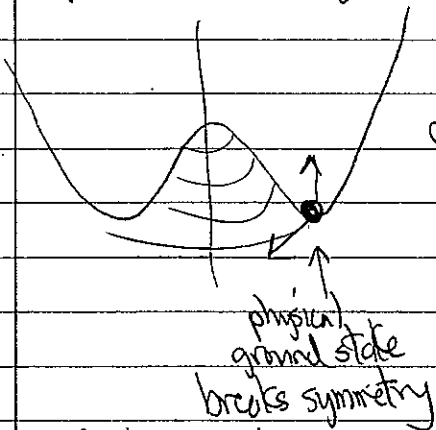 physical
ground state
breaks symmetry